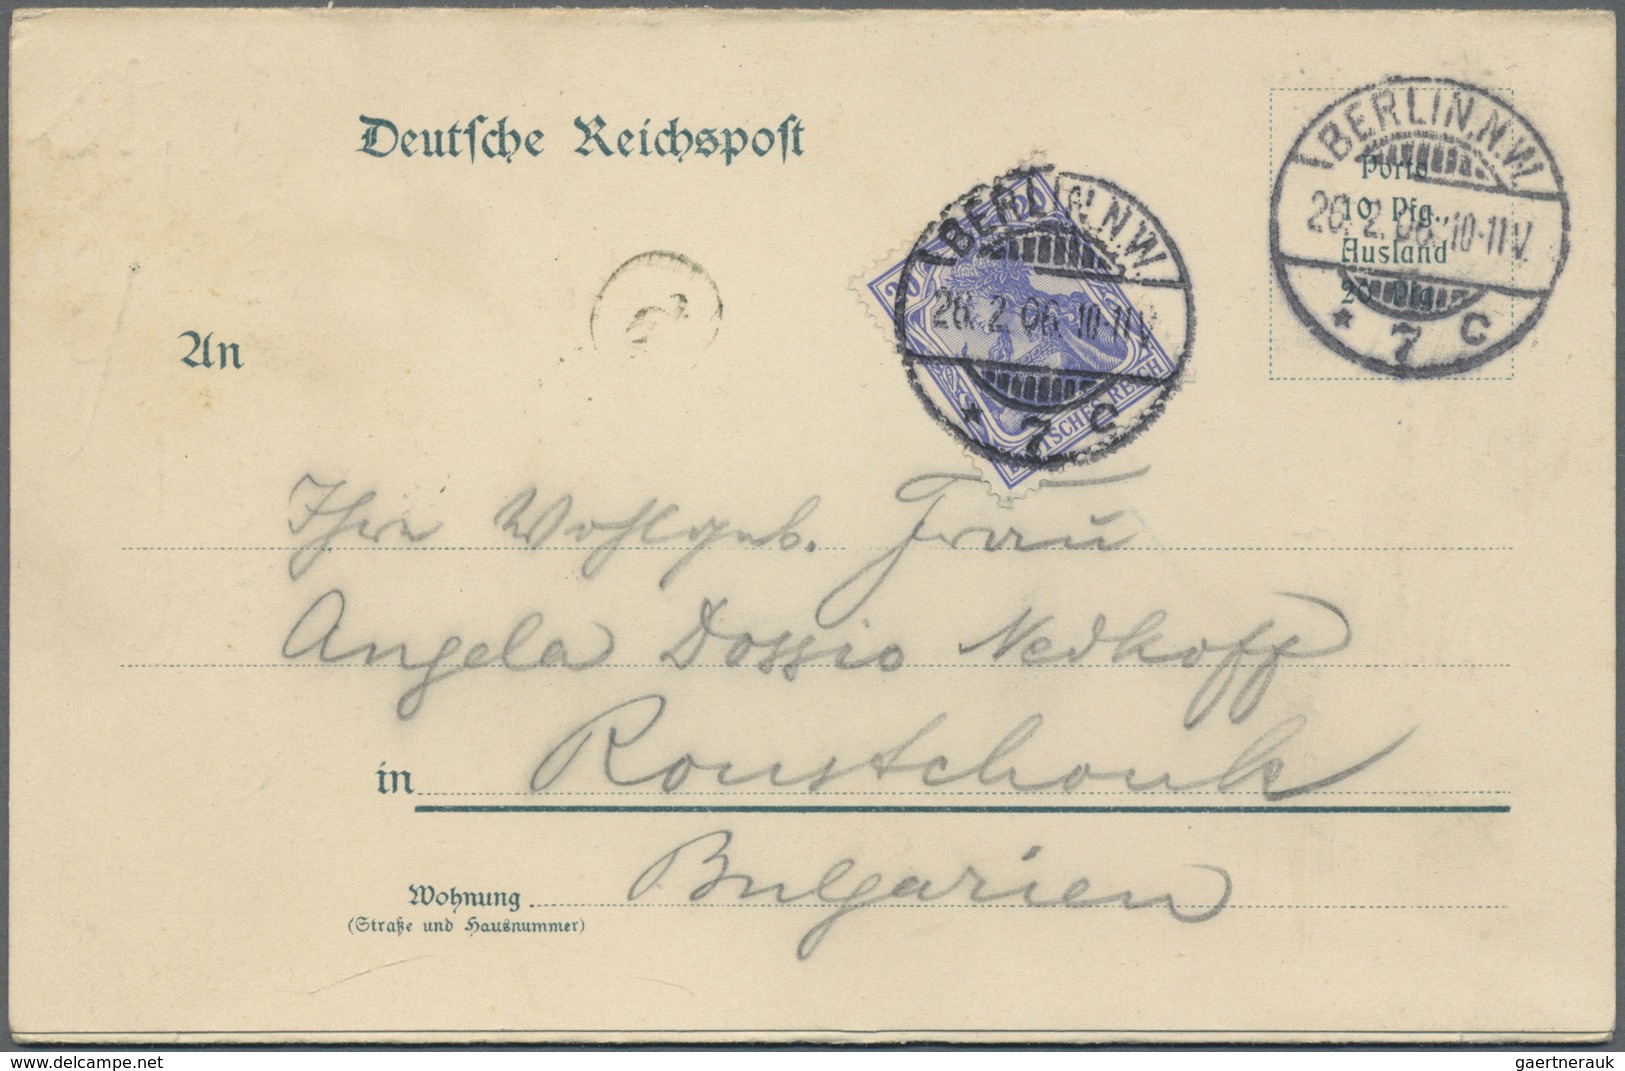 Deutsche Reichspost
BERLIN.N.W.
26.2.06.10-11V.
* 7 C
Porto
10 Pfg.,
Ausland
20 Pfg.
BERLIN.N.W.
26.2.06.10-11V.
* 7 C
20
20
DEUTSCHES REICH
An
Ihre Wohlgeb. Frau
Angela Dossio Nedkoff
in Roustchouk
Bulgarien
Wohnung
(Straße und Hausnummer)
delcampe.net
gaertnerauk